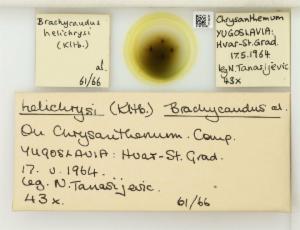 Brachycaudus
helichrysi
(Kltb.)
al.
61/66
Chrysanthemum
YUGOSLAVIA:
Hvar-St.Grad.
17.5.1964
leg N.Tanasijevic
43x
helichrysi (Kltb.) Brachycaudus al.
On Chrysanthemum. Comp.
YUGOSLAVIA: Hvar-St.Grad.
17. V. 1964.
Leg. N.Tanasijevic.
43x. 61/66